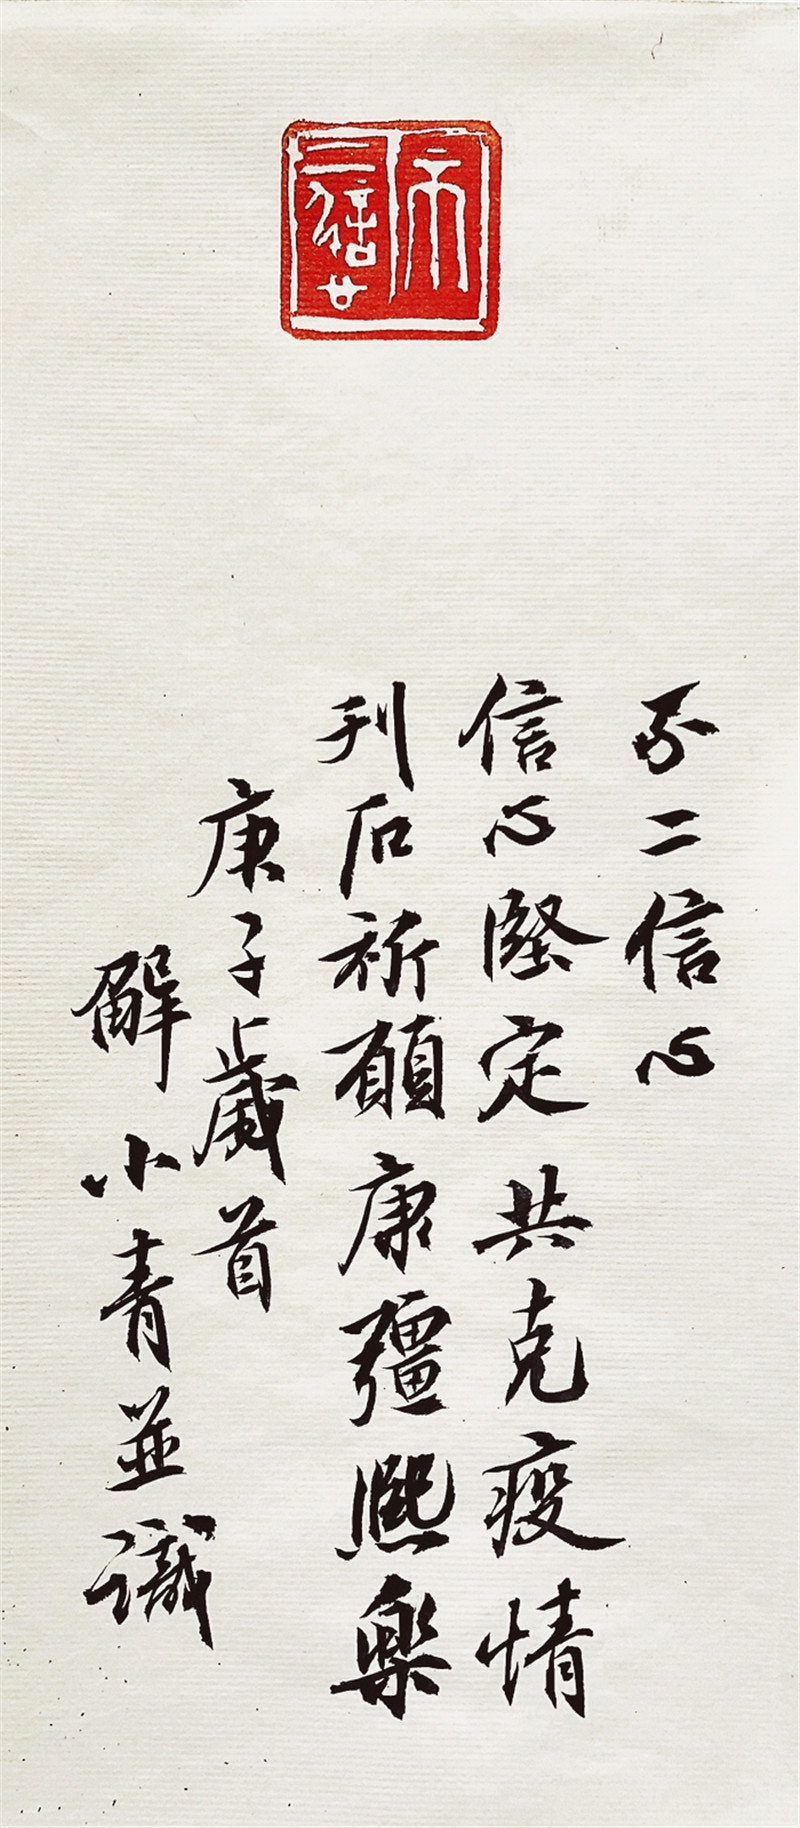 不二信心
不二信心
信心堅定共克疫情
刊石祈願康彊熙樂
庚子歲首
解小青並識